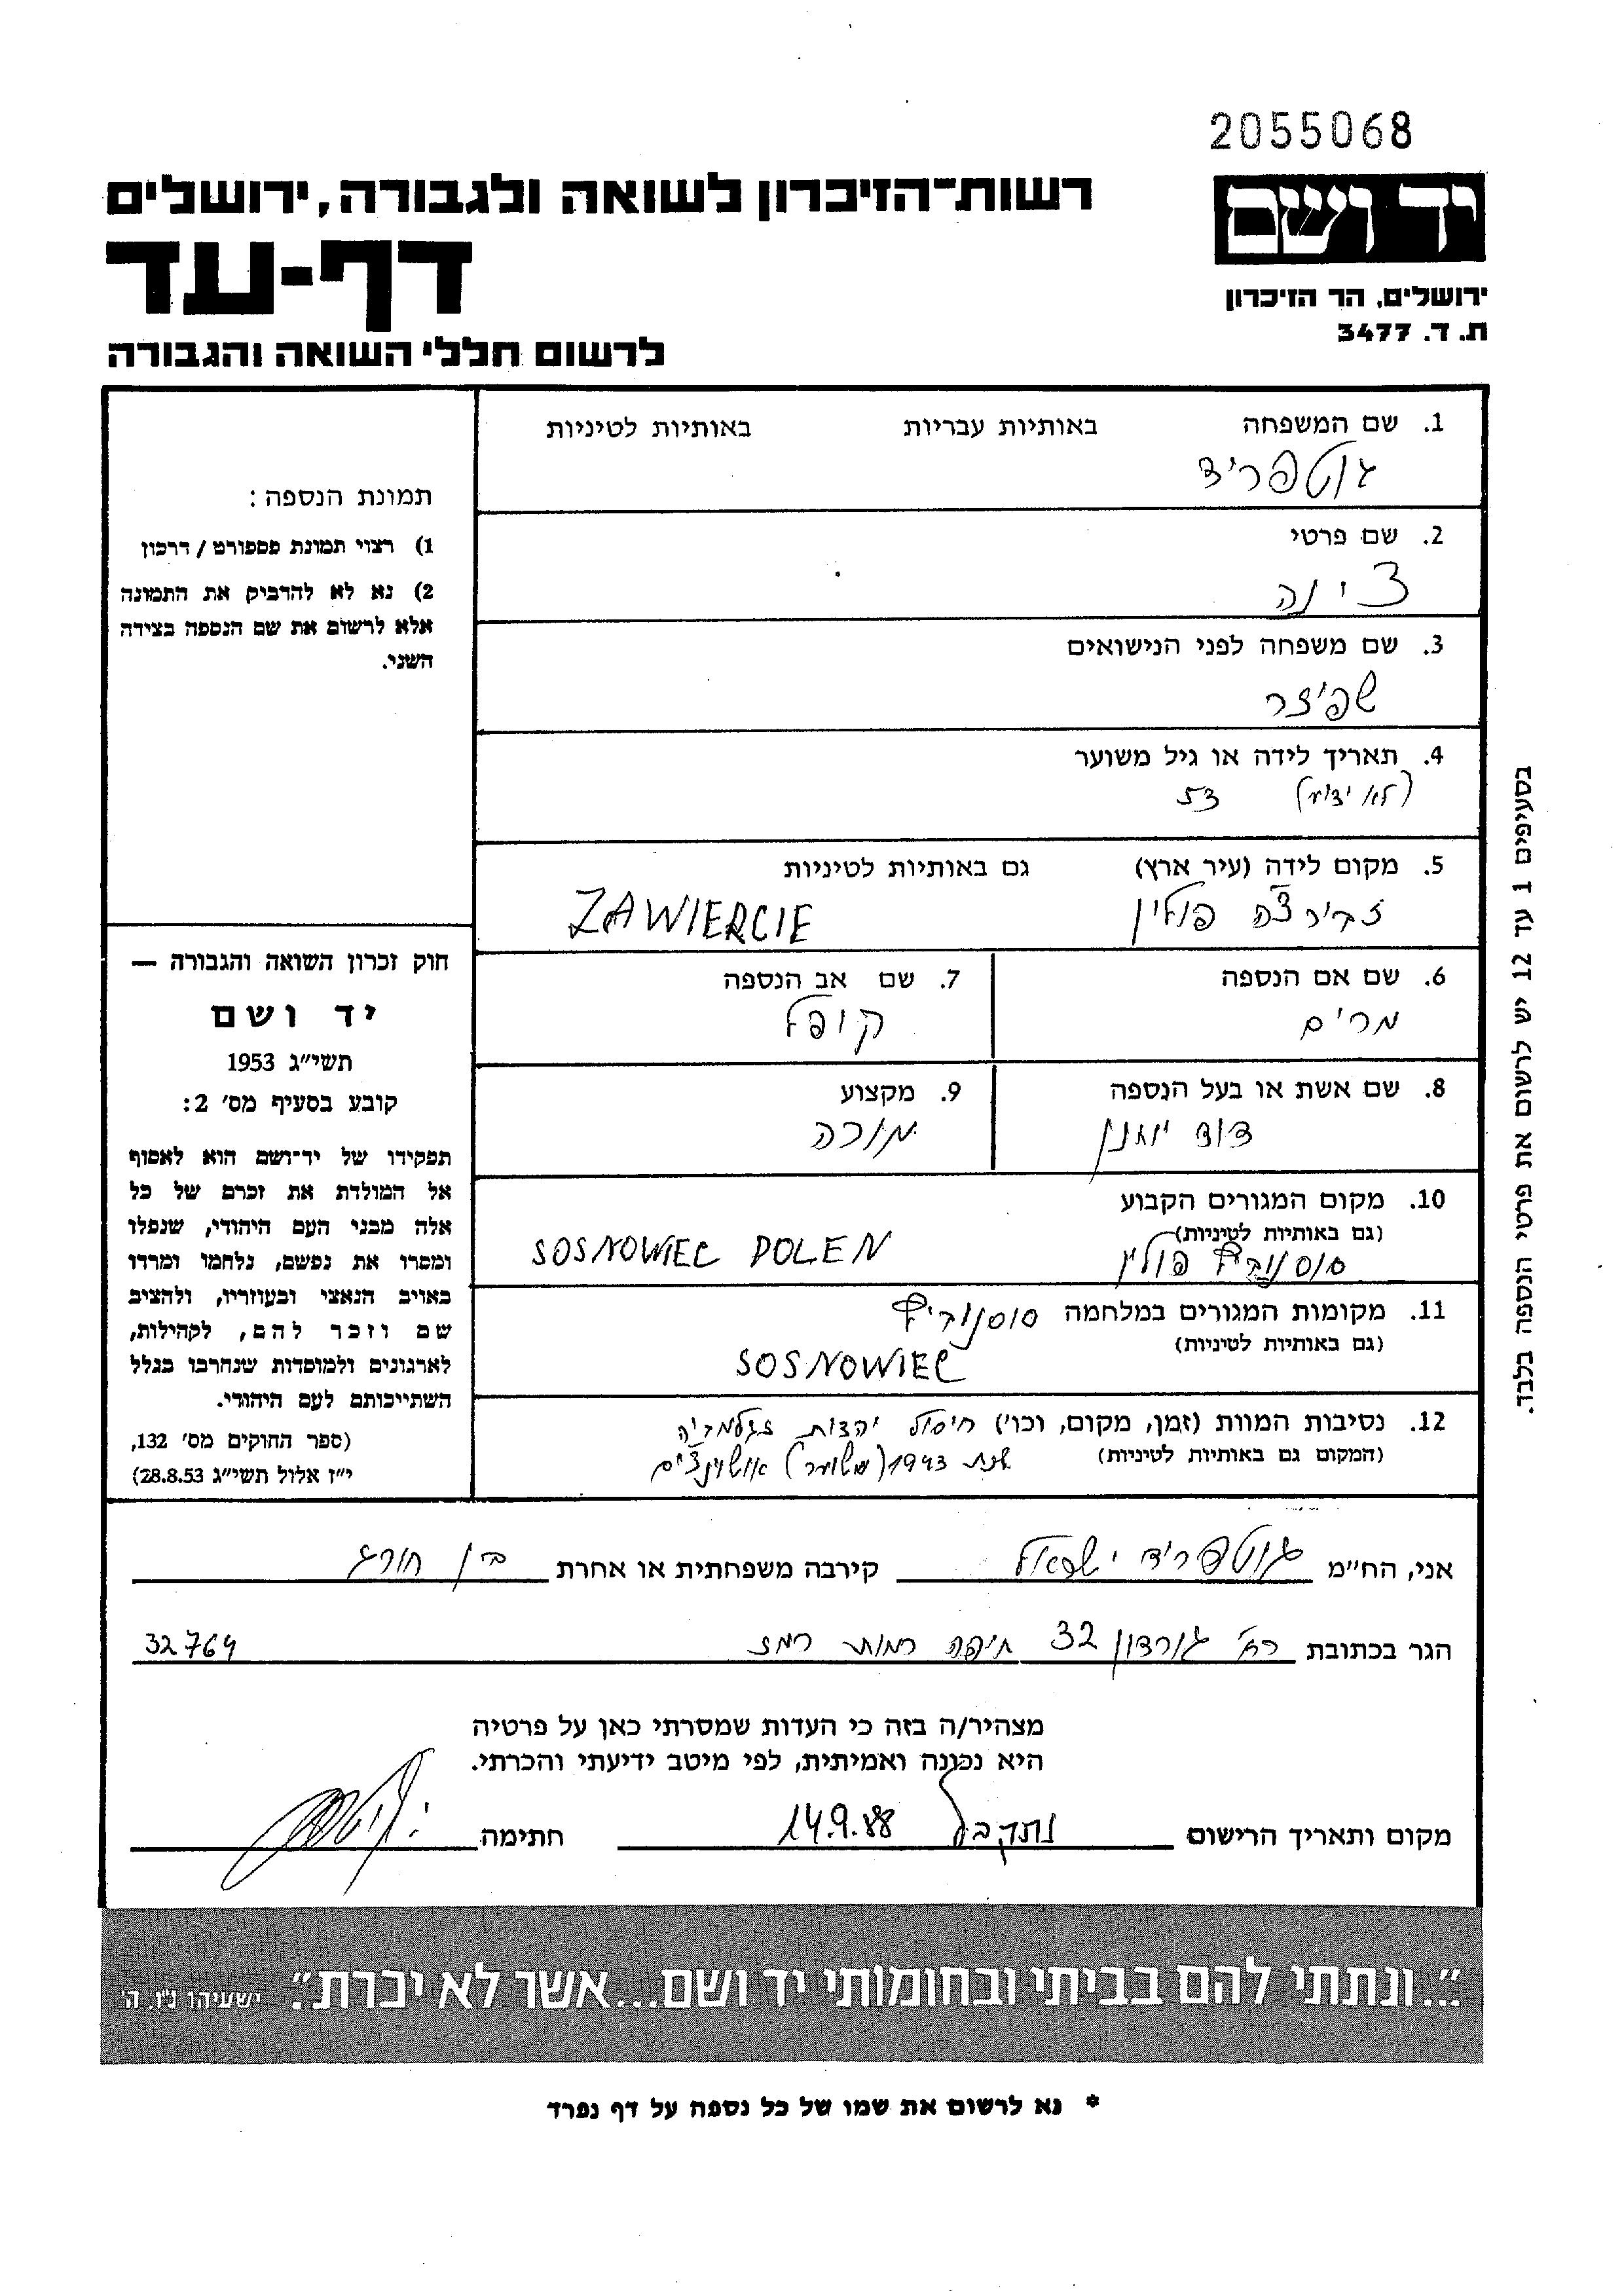 2055068
יד ושם
ירושלים, הר הזיכרון
ת. ד. 3477
רשות־הזיכרון לשואה ולגבורה, ירושלים
דף-עד
לרשום חללי השואה והגבורה
1. שם המשפחה באותיות עבריות באותיות לטיניות
גוטפריד
2. שם פרטי
צ'ינה
3. שם משפחה לפני הנישואים
שפיצר
4. תאריך לידה או גיל משוער
(לא ידוע) 53
5. מקום לידה (עיר ארץ) גם באותיות לטיניות
פולין ZAWIERCIE
6. שם אם הנספה
מרים
7. שם אב הנספה
קופל
8. שם אשת או בעל הנספה
דוד יונתן
9. מקצוע
מורה
10. מקום המגורים הקבוע
(גם באותיות לטיניות)
סוסנוביץ פולין SOSNOWIEC POLEN
11. מקומות המגורים במלחמה סוסנוביץ
(גם באותיות לטיניות)
SOSNOWIEC
12. נסיבות המוות (זמן, מקום, וכו') חיסול יהדות זגלמביה
(המקום גם באותיות לטיניות) שנת 1943 (משוער)
תמונת הנספה:
1) רצוי תמונת פספורט / דרכון
2) נא לא להדביק את התמונה
אלא לרשום את שם הנספה בצידה
השני.
חוק זכרון השואה והגבורה —
יד ושם
תשי״ג 1953
קובע בסעיף מס׳ 2:
תפקידו של יד־ושם הוא לאסוף
אל המולדת את זכרם של כל
אלה מבני העם היהודי, שנפלו
ומסרו את נפשם, נלחמו ומרדו
באויב הנאצי ובעוזריו, ולהציב
שם וזכר להם, לקהילות,
לארגונים ולמוסדות שנחרבו בגלל
השתייכותם לעם היהודי.
(ספר החוקים מס׳ 132,
י״ז אלול תשי״ג 28.8.53)
בסעיפים 1 עד 12 יש לרשום את פרטי הנספה בלבד.
אני, הח״מ גוטפריד ישראל קירבה משפחתית או אחרת בן חורג
הגר בכתובת רח' גורדון 32 חיפה רמות רמז 32764
מצהיר/ה בזה כי העדות שמסרתי כאן על פרטיה
היא נכונה ואמיתית, לפי מיטב ידיעתי והכרתי.
מקום ותאריך הרישום נתקבל 14.9.88 חתימה
״...ונתתי להם בביתי ובחומותי יד ושם...אשר לא יכרת״. ישעיהו נ״ו, ה׳
* נא לרשום את שמו של כל נספה על דף נפרד